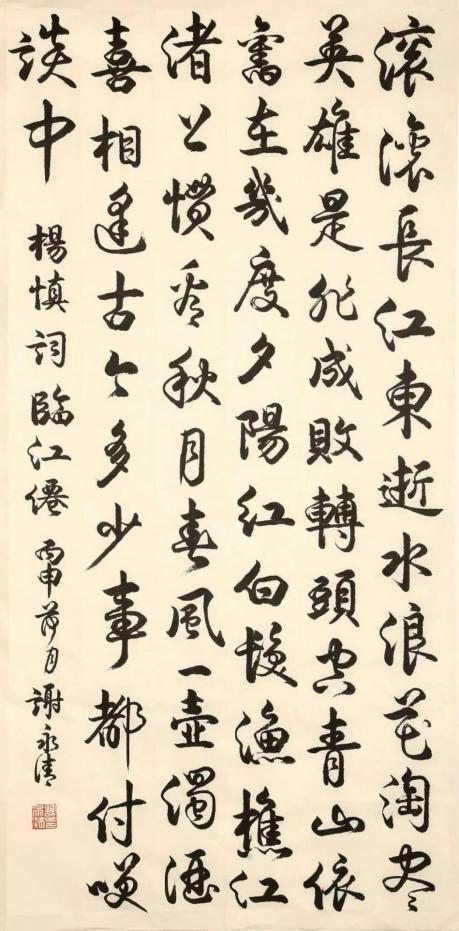 滚滚長江東逝水浪花淘尽
英雄是非成敗轉頭空青山依
舊在幾度夕陽紅白髮漁樵江
渚上慣看秋月春風一壺濁酒
喜相逢古今多少事都付咲
談中 楊慎詞臨江僊 丙申荷月 謝永清